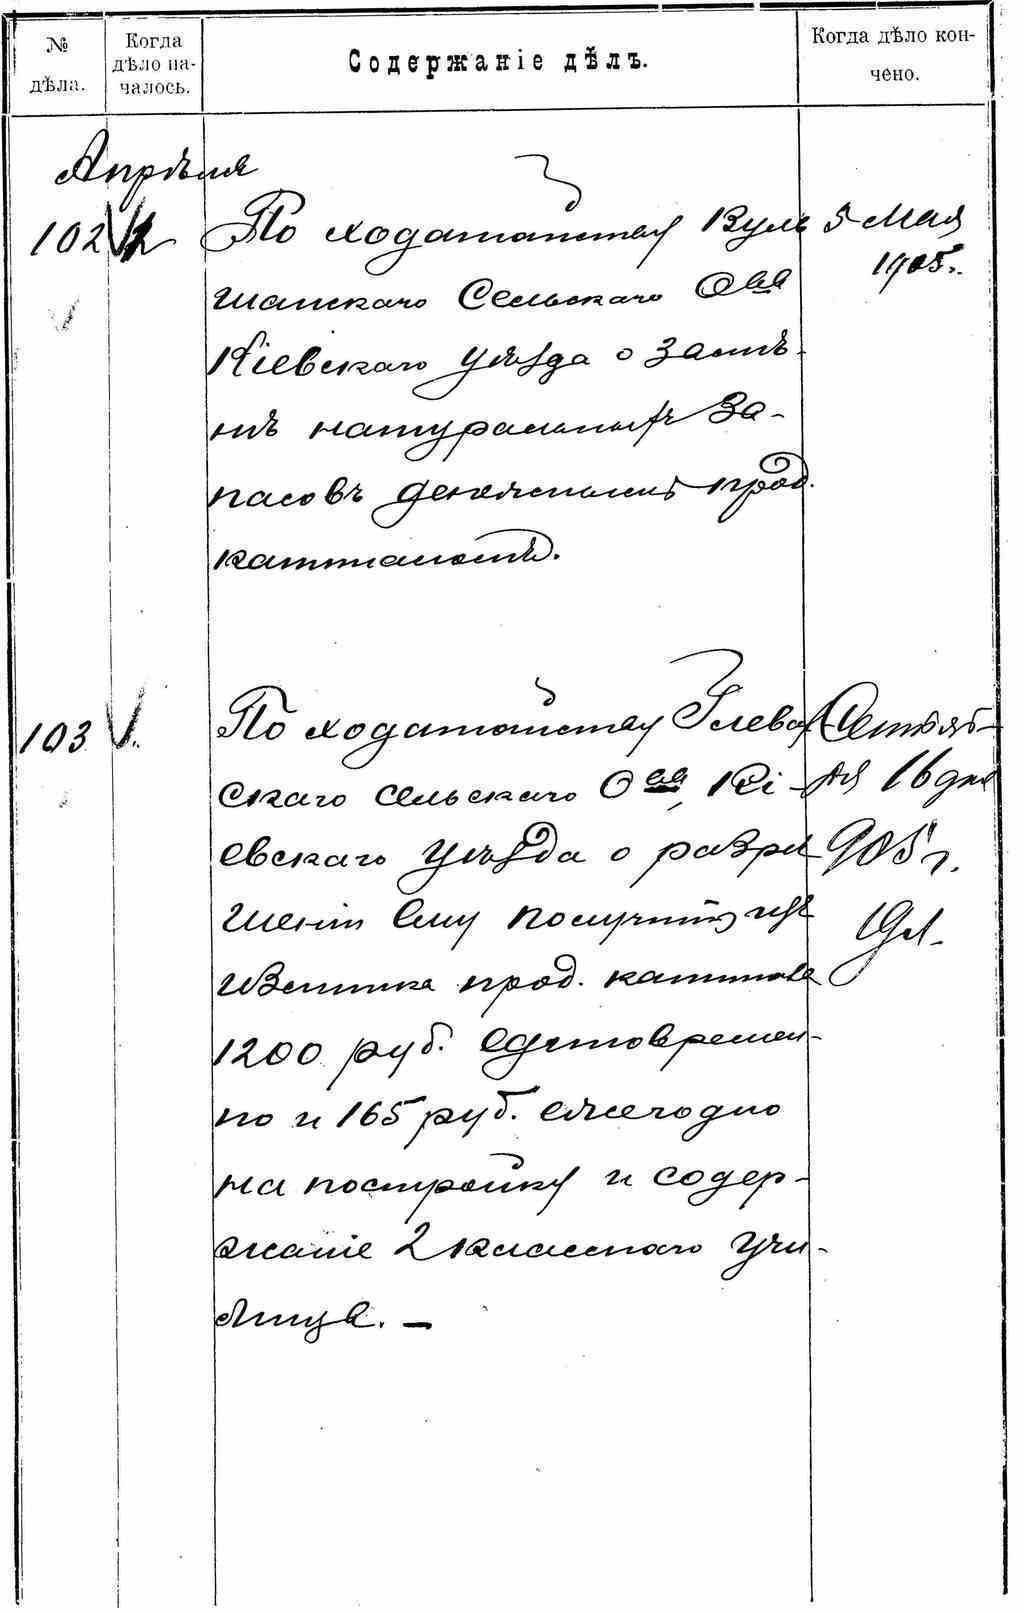 № дѣла.
Когда дѣло на-
чалось.
Содержаніе дѣлъ.
Когда дѣло кон-
чено.
Апрѣля
102 12 По ходатайству 5 Мая
1905г.
шанскаго Сельскаго Ова
Кіевскаго уѣзда о замѣ-
нѣ натуральныхъ За-
пасовъ денежнымъ прод.
капиталомъ.
103 По ходатайству Глева Сентяб-
скаго сельскаго Ова, Кі- ря 16 дня
евскаго уѣзда о разрѣ 905 г.
шеніи ему получить изъ
избытка прод. капитала
1200 руб. единовремен-
но и 165 руб. ежегодно
на постройку и содер-
жаніе 2 класснаго учи-
лища. –